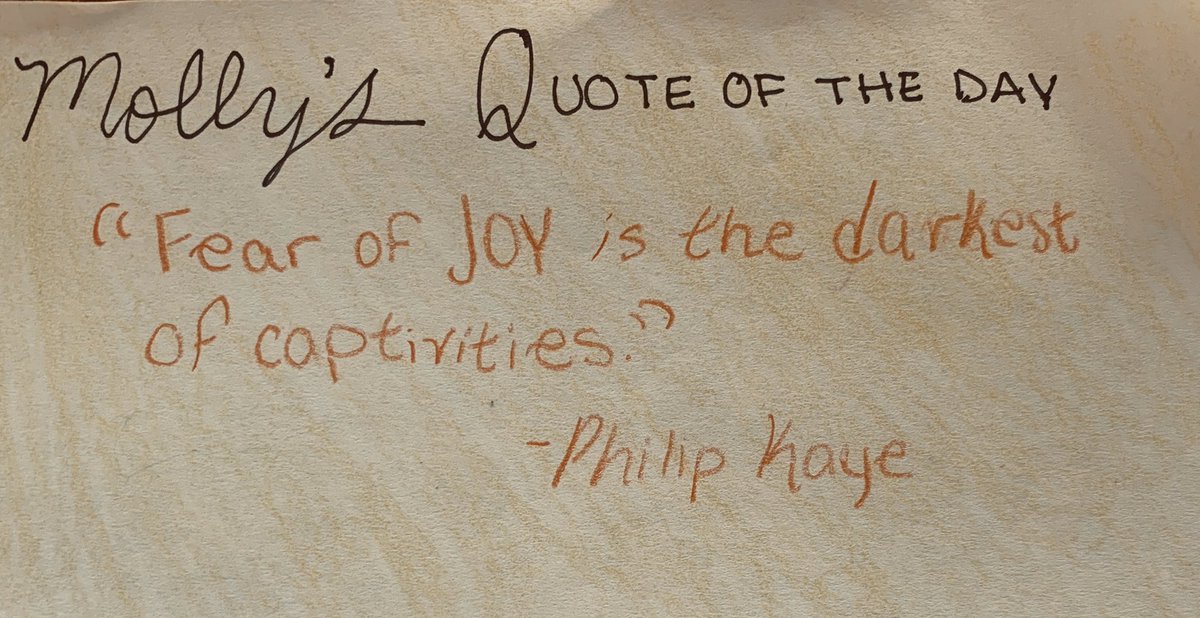 Molly's QUOTE OF THE DAY
"Fear of JOY is the darkest
of captivities."
-Philip Kaye